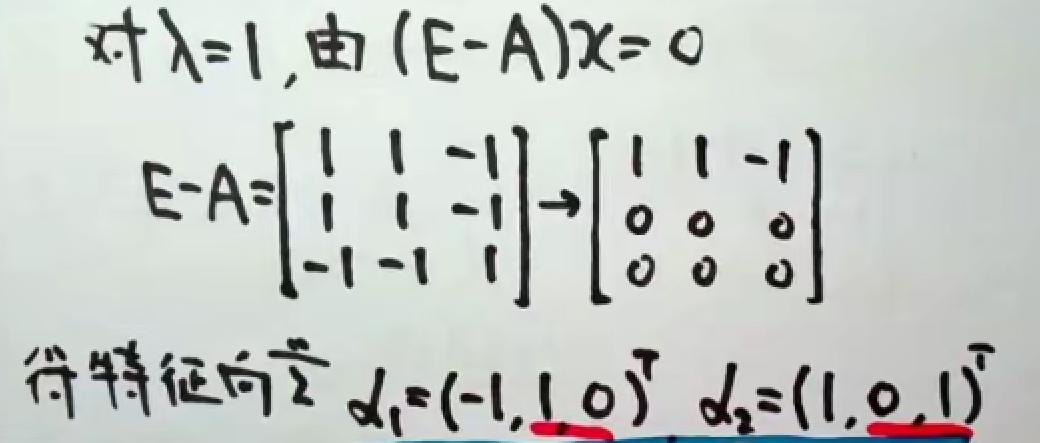 对λ=1,由(E-A)x=0
E-A=[1 1 -1; 1 1 -1; -1 -1 1]→[1 1 -1; 0 0 0; 0 0 0]
得特征向量 α₁=(-1,1,0)ᵀ α₂=(1,0,1)ᵀ